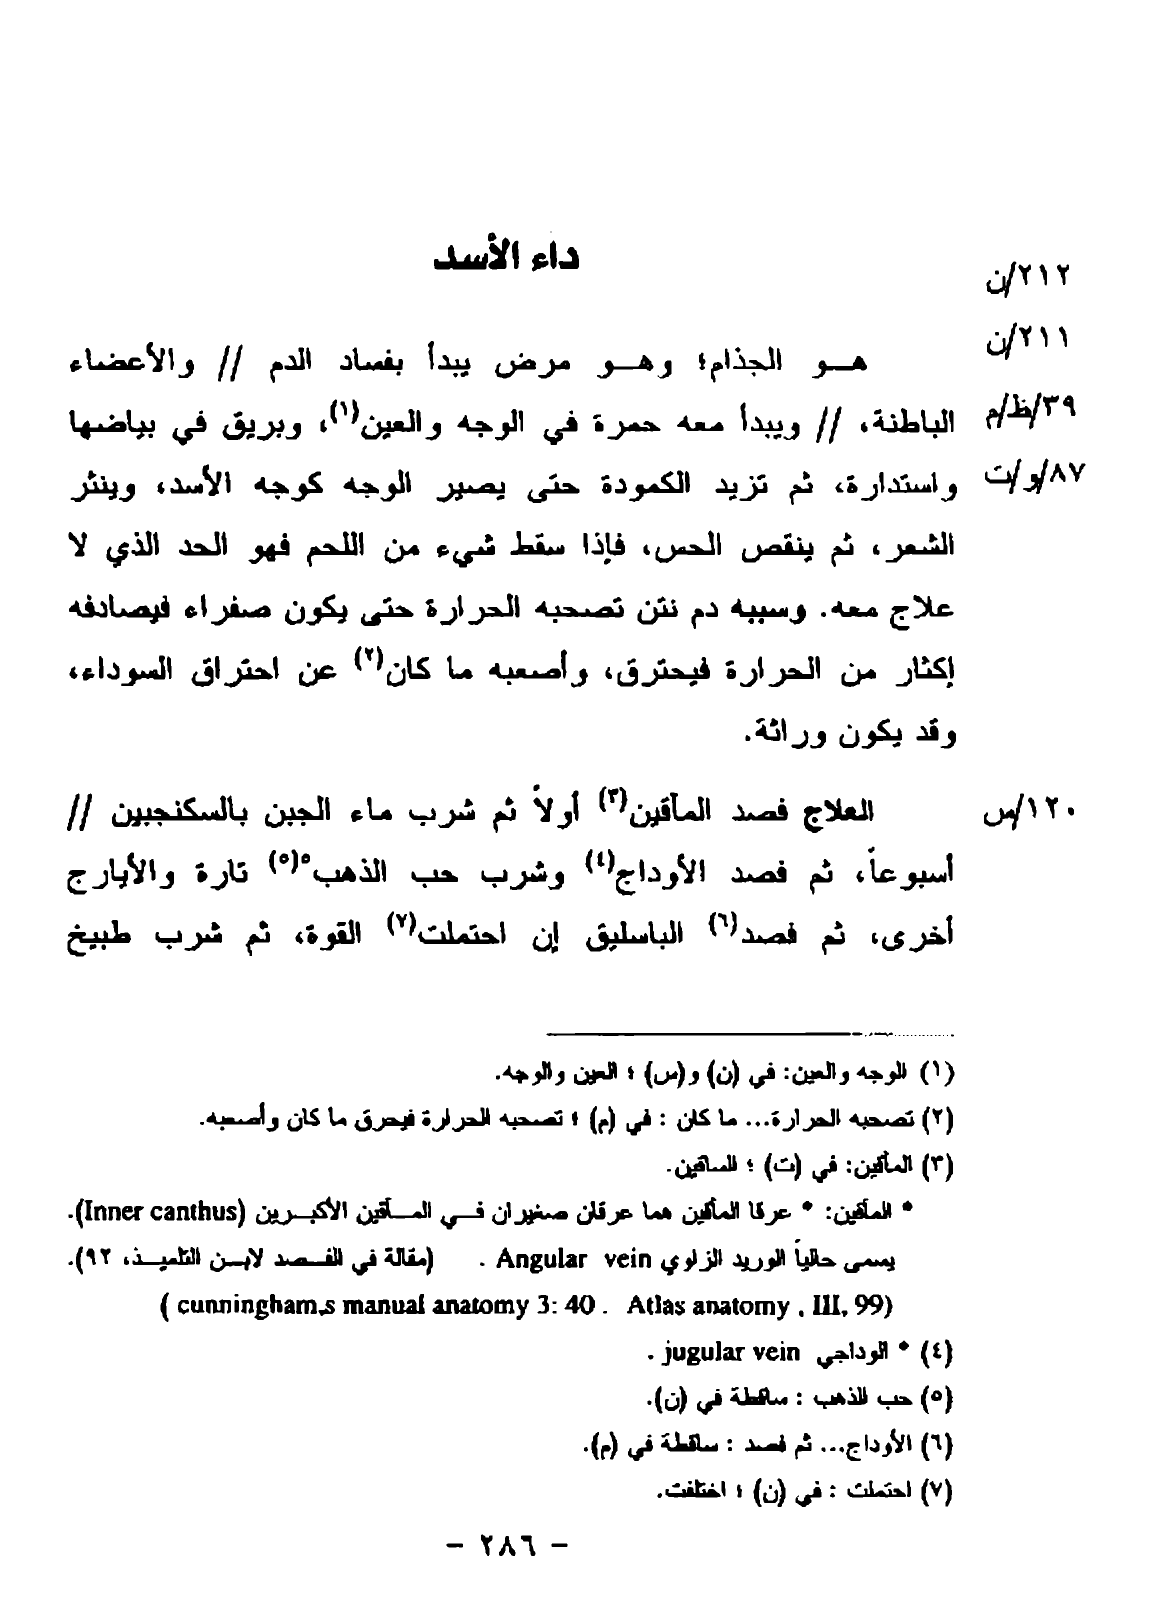 داء الأسد
٢١٢/ن
٢١١/ن
هـو الجذام؛ وهـو مرض يبدأ بفساد الدم // والأعضاء
٣٩/ظ/م
الباطنة، // ويبدأ معه حمرة في الوجه والعين(١)، وبريق في بياضها
٨٧/و/ت
واستدارة، ثم تزيد الكمودة حتى يصير الوجه كوجه الأسد، وينثر
الشعر، ثم ينقص الحس، فإذا سقط شيء من اللحم فهو الحد الذي لا
علاج معه. وسببه دم نتن تصحبه الحرارة حتى يكون صفراء فيصادفه
إكثار من الحرارة فيحترق، وأصعبه ما كان(٢) عن احتراق السوداء،
وقد يكون وراثة.
١٢٠/س
العلاج فصد المآقين(٣) أولاً ثم شرب ماء الجبن بالسكنجبين //
أسبوعاً، ثم فصد الأوداج(٤) وشرب حب الذهب°(٥) تارة والأيارج
أخرى، ثم فصد(٦) الباسليق إن احتملت(٧) القوة، ثم شرب طبيخ
(١) الوجه والعين: في (ن) و(س) ؛ العين والوجه.
(٢) تصحبه الحرارة... ما كان : في (م) ؛ تصحبه الحرارة فيحرق ما كان وأصعبه.
(٣) المآقين: في (ت) ؛ الساقين.
* المآقين: * عرقا المآقين هما عرقان صغيران فـي المـآقين الأكبـرين (Inner canthus).
يسمى حالياً الوريد الزاوي Angular vein . (مقالة في الفـصد لابـن التلميـذ، ٩٢).
( cunningham,s manual anatomy 3: 40 . Atlas anatomy , III, 99)
(٤) * الوداجي jugular vein .
(٥) حب الذهب : ساقطة في (ن).
(٦) الأوداج... ثم فصد : ساقطة في (م).
(٧) احتملت : في (ن) ؛ اختلفت.
- ٢٨٦ -